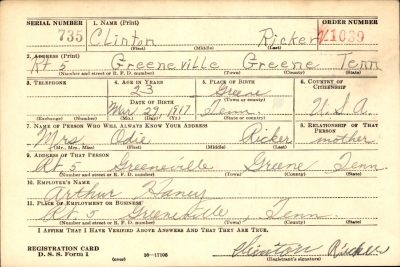 SERIAL NUMBER 1. NAME (Print) ORDER NUMBER
735 Clinton Ricker V1039
(First) (Middle) (Last)
2. ADDRESS (Print)
Rt 5 Greeneville Greene Tenn
(Number and street or R. F. D. number) (Town) (County) (State)
3. TELEPHONE 4. AGE IN YEARS 5. PLACE OF BIRTH 6. COUNTRY OF CITIZENSHIP
23 Greene
(Town or county)
DATE OF BIRTH
Mar 29, 1917 Tenn. U.S.A.
(Exchange) (Number) (Mo.) (Day) (Yr.) (State or country)
7. NAME OF PERSON WHO WILL ALWAYS KNOW YOUR ADDRESS 8. RELATIONSHIP OF THAT PERSON
Mrs Odie Ricker mother
(Mr., Mrs., Miss) (First) (Middle) (Last)
9. ADDRESS OF THAT PERSON
Rt 5 Greeneville Greene Tenn
(Number and street or R. F. D. number) (Town) (County) (State)
10. EMPLOYER'S NAME
Arthur Haney
11. PLACE OF EMPLOYMENT OR BUSINESS
Rt. 5 Greeneville, Tenn.
(Number and street or R. F. D. number) (Town) (County) (State)
I AFFIRM THAT I HAVE VERIFIED ABOVE ANSWERS AND THAT THEY ARE TRUE.
REGISTRATION CARD
D. S. S. Form 1 (over) 16—17105 Clinton Ricker
(Registrant's signature)